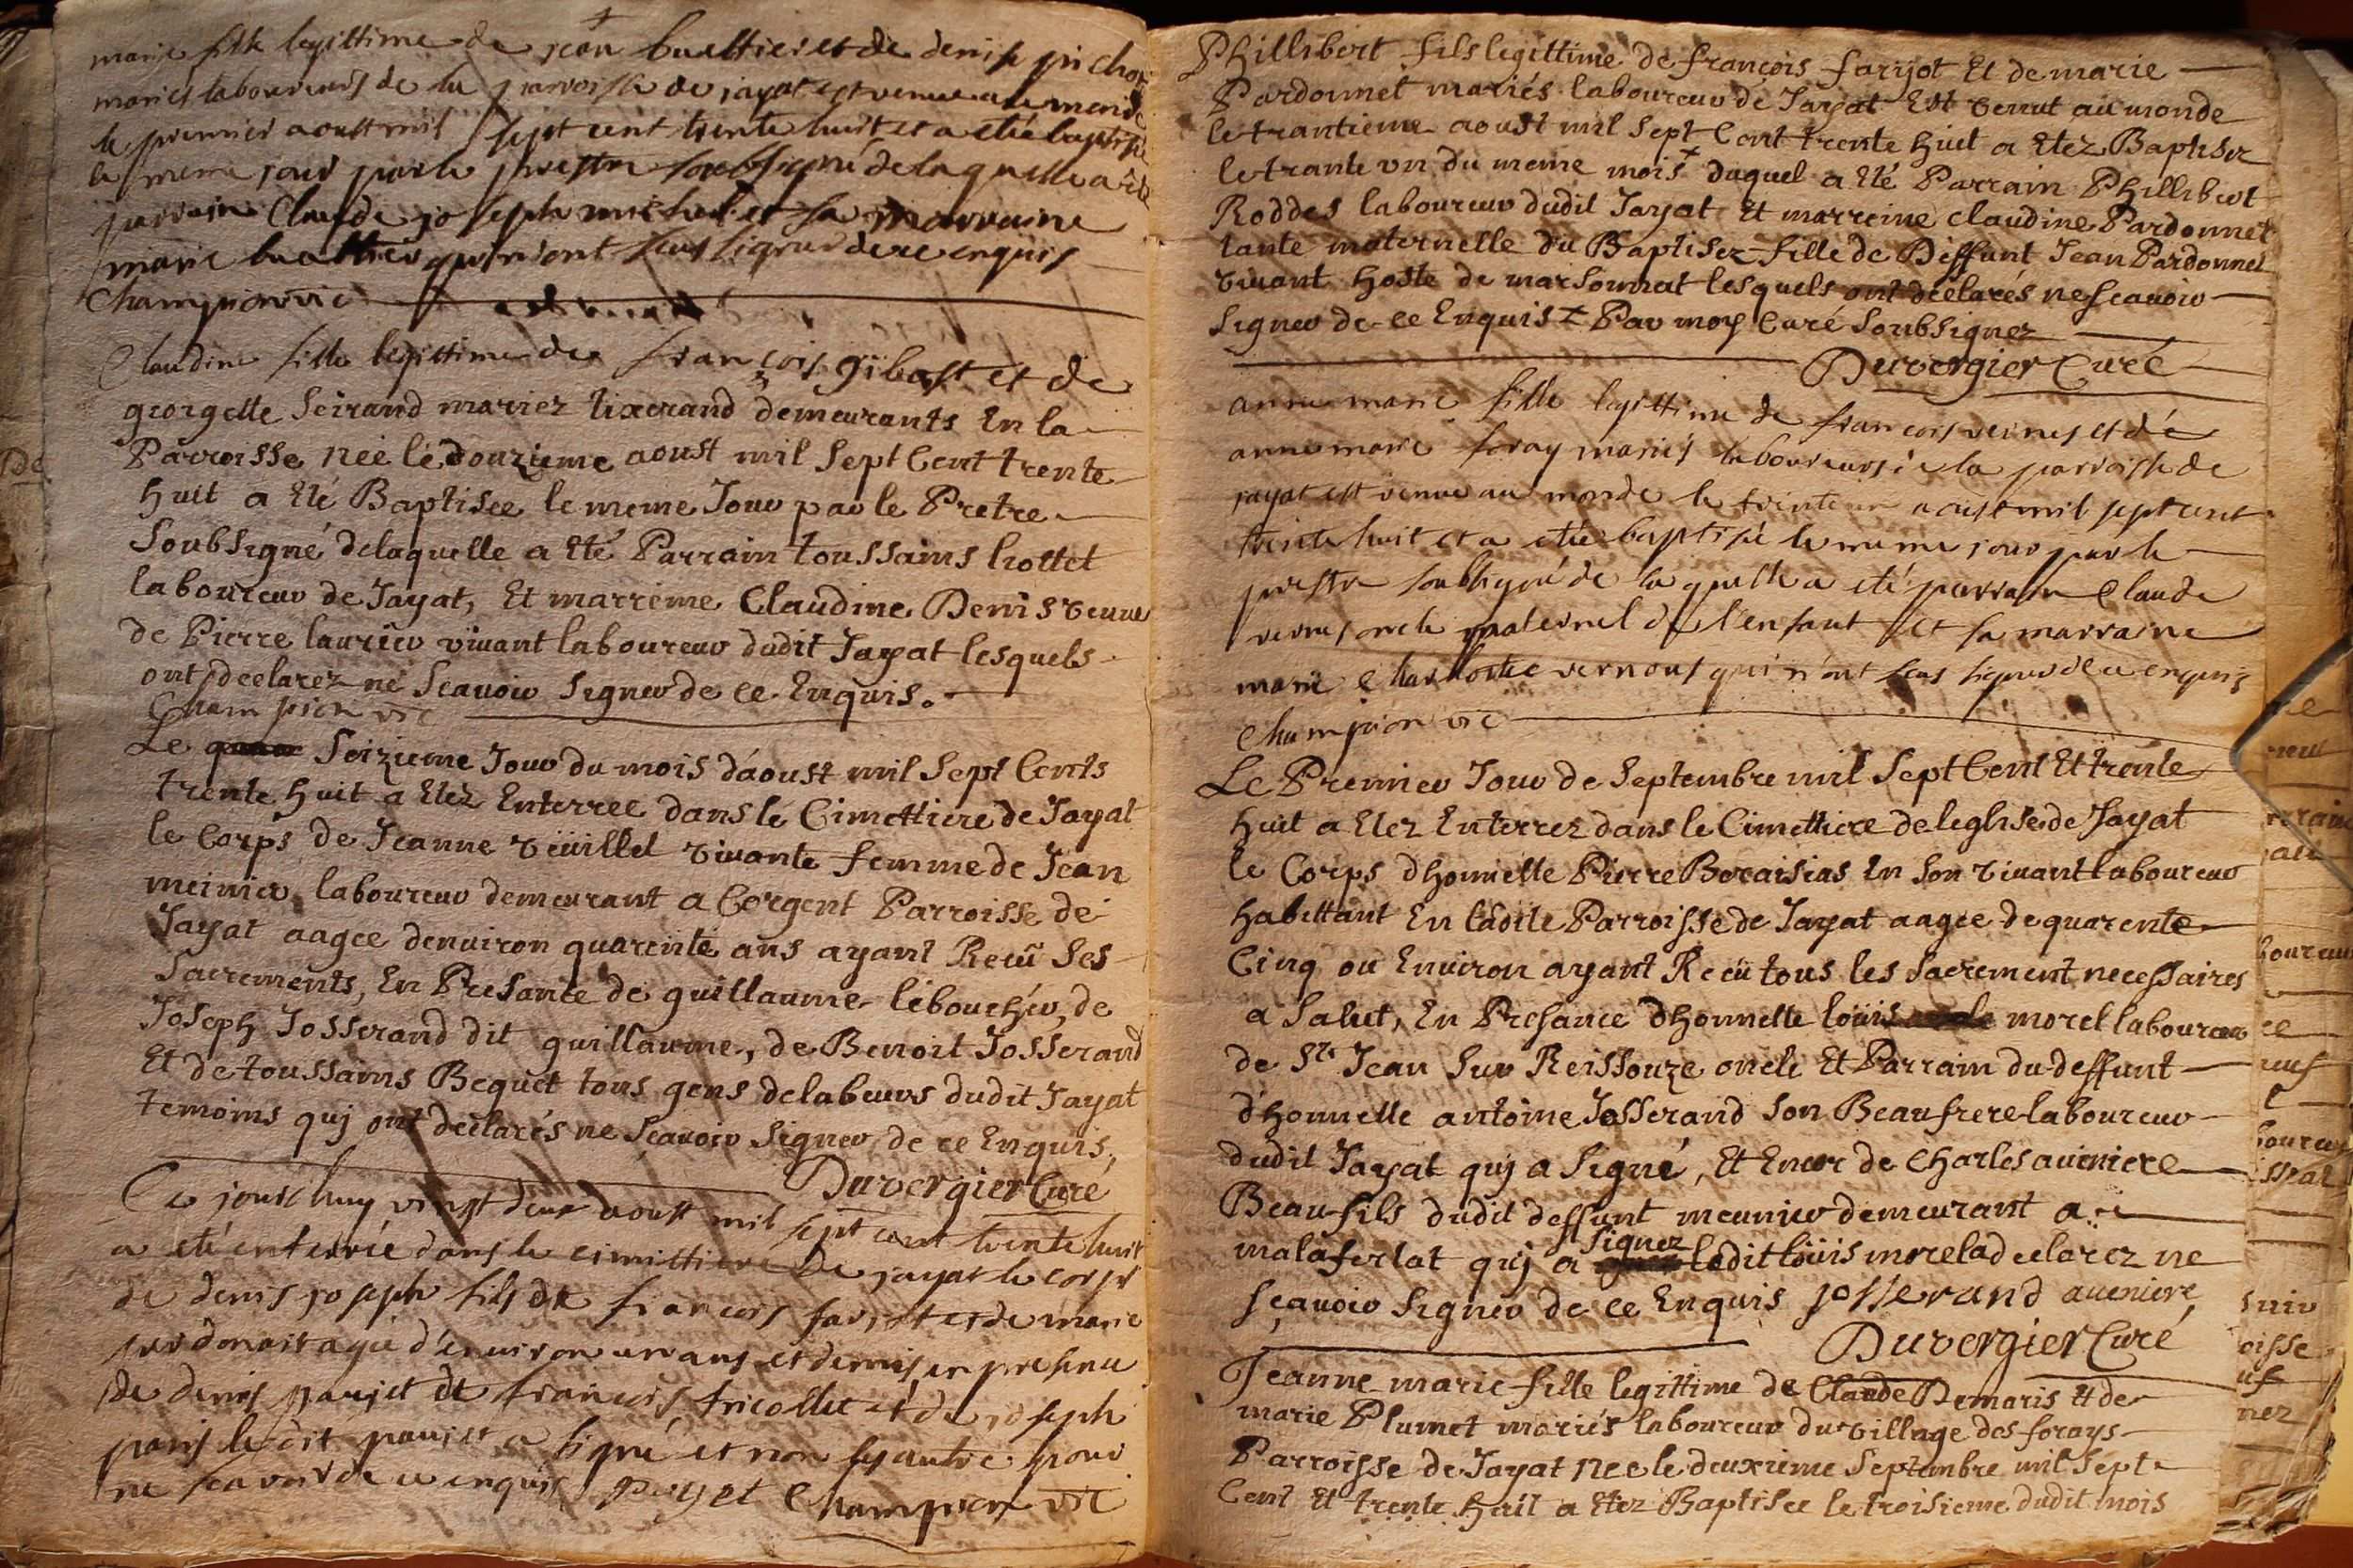 marie fille legittime de jean buattier et de denise pichon
mariés laboureurs de la parroisse de jayat est venue au monde
le premier aoust mil sept cent trente huit et a etée baptisée
le meme jour par le prestre soubsigné de laquelle a été
parrain Claude joseph michel et sa marraine
marie buattier qui n'ont sceus signer de ce enquis
Champion vic
Claudine fille legittime de françois gibast et de
georgette Seirand mariez tixerand demeurants En la
Parroisse neé le douzieme aoust mil Sept Cent trente
huit a Eté Baptisee le meme Jour par le Pretre
Soubsigné delaquelle a Eté Parrain toussains
laboureur de Jayat, Et marreine Claudine Denis veuve
de Pierre laurier vivant laboureur dudit Jayat lesquels
ont declarez ne Scavoir Signer de ce Enquis.
Champion vic
Le Seizieme Jour du mois d'aoust mil Sept Cents
trente huit a Etez Enterree dans le Cimettiere de Jayat
le Corps de Jeanne veüillet vivante femme de Jean
meinier laboureur demeurant a Corgent Parroisse de
Jayat aagee denviron quarente ans ayant Receü Ses
Sacrements, En Presante de guillaume lebouchér, de
Joseph Josserand dit guillaume, de Benoit Josserand
Et de toussains Bequet tous gens delabeurs dudit Jayat
temoins quj ont declarés ne Scavoir Signer de ce Enquis,
Duvergier Curé
Ce jourdhuy vingt deux aoust mil sept cent trente huit
a eté enterrée dans le cimittiere de jayat le corps
de denis joseph fils de françois farjot et de marie
perdonnat agé d'environ un ans et demis, en presence
de denis pauget de françois tricollet et de joseph
paris ledit pauget a signé et non les autre pour
ne scavoir de ce enquis pauget Champion vic
Phillibert fils legittime de françois farijot Et de marie
Pardonnet mariés laboureur de Jayat Est venut au monde
le trantieme aoust mil Sept Cent trente huit a Etez Baptisez
le trante un du meme mois duquel a Eté Parrain Phillibert
Roddes laboureur dudit Jayat Et marreine claudine Pardonnet
tante maternelle du Baptisez fille de Deffunt Jean Pardonnet
vivant hoste de marsonnat lesquels ont declarés ne Scavoir
Signer de ce Enquis Par moy Curé Soubsignez
Duvergier Curé
anne marie fille legittime de françois vernes et de
anne marie foray mariés laboureurs de la parroisse de
jayat est venue au monde le trente un aoust mil sept cent
trente huit et a etée baptisée le meme jour par le
prestre soubsigné de laquelle a eté parrain Claude
vernes oncle paternel de l'enfant et sa marraine
marie Charlotte vernous qui n'ont sceus signer de ce enquis
Champion vic
Le Premier Jour de Septembre mil Sept Cent Et trente
huit a Etez Enterrez dans le Cimettiere de leglise de Jayat
le Corps dhonnette Pierre Borcaisias En Son vivant laboureur
habittant En ladite Parroisse de Jayat aagee de quarente
Cinq ou Environ ayant Receü tous les Sacrement necessaires
a Salut, En Presance dhonnette loüis morel laboureur
de St. Jean Sur Reissouze oncle Et Parrain du deffunt
d'honnette antoine Josserand Son Beaufrere laboureur
dudit Jayat quj a Signé, Et Encor de Charles aveniere
Beaufils dudit deffunt meunier demeurant a
malafertat quj a Signez ledit loüis morel a declarez ne
Sçavoir Signer de ce Enquis josserand aveniere
Duvergier Curé
Jeanne marie fille legittime de Claude Demaris Et de
marie Plumet mariés laboureur du village des forays
Parroisse de Jayat Nee le deuxieme Septembre mil Sept
Cent Et trente huit a Etez Baptisee le troisieme dudit mois